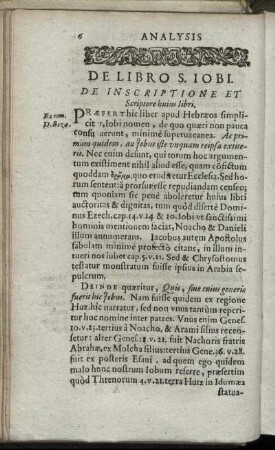 6 ANALYSIS
DE LIBRO S. IOBI.
DE INSCRIPTIONE ET
Scriptore huius libri.
PRÆFERT hic liber apud Hebræos simpli-
citer, Iobi nomen, de quo quæri non pauca
D. Beza.
consueuerunt, minimè superuacanea. Ac pri-
mùm quidem, an Iobus iste vnquam reipsa extite-
rit. Nec enim desunt, qui totum hoc argumen-
tum existiment nihil aliud esse, quàm cōfictum
quoddam quo eruditur Ecclesia. Sed ho-
rum sententiā prorsus esse repudiandam censeo;
mm quoniam sic penè aboleretur huius libri
auctoritas & dignitas, tum quòd disertè Domi-
nus Ezech. cap. 14. v. 14 & 20. Iobi vt sanctissimi
hominis mentionem faciat, Noacho & Danieli
illum annumerans. Iacobus autem Apostolus
fabulam minimè profectò citans, in illum in-
tueri nos iubet cap. 5. v. 11. Sed & Chrysostomus
testatur monstratum fuisse ipsius in Arabia se-
pulcrum.
DEINDE quæritur, Quis, siue cuius generis
fuerit hic Iobus. Nam fuisse quidem ex regione
Huz, hîc narratur, sed non vnus tantùm reperi-
tur hoc nomine inter patres. Vnus enim Genes.
10. v. 23. tertius à Noacho, & Arami filius recen-
setur: alter Genes. v. 21. fuit Nachoris fratris
Abrahæ, ex Molcha filius: tertius Gene. 36. v. 28.
fuit ex posteris Esaui, ad quem ego quidem
malo hunc nostrum Iobum referre, præsertim
quòd Threnorum 4. v. 21. terra Hutz in Idumæa
statua-